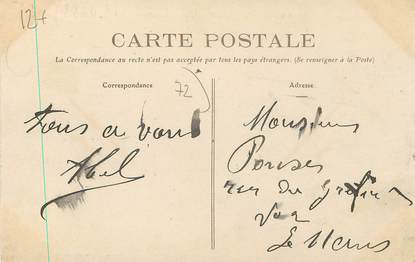 12+
CARTE POSTALE
La Correspondance au recto n'est pas acceptée par tous les pays étrangers. (Se renseigner à la Poste)
Correspondance
72
Tous a vous
Abel
Adresse
Monsieur
rue du
Le Mans